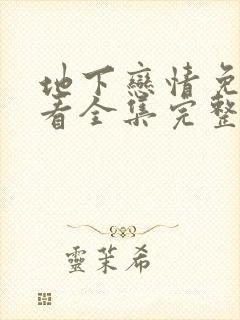 地下戀情免
看全集完整
靈茉希